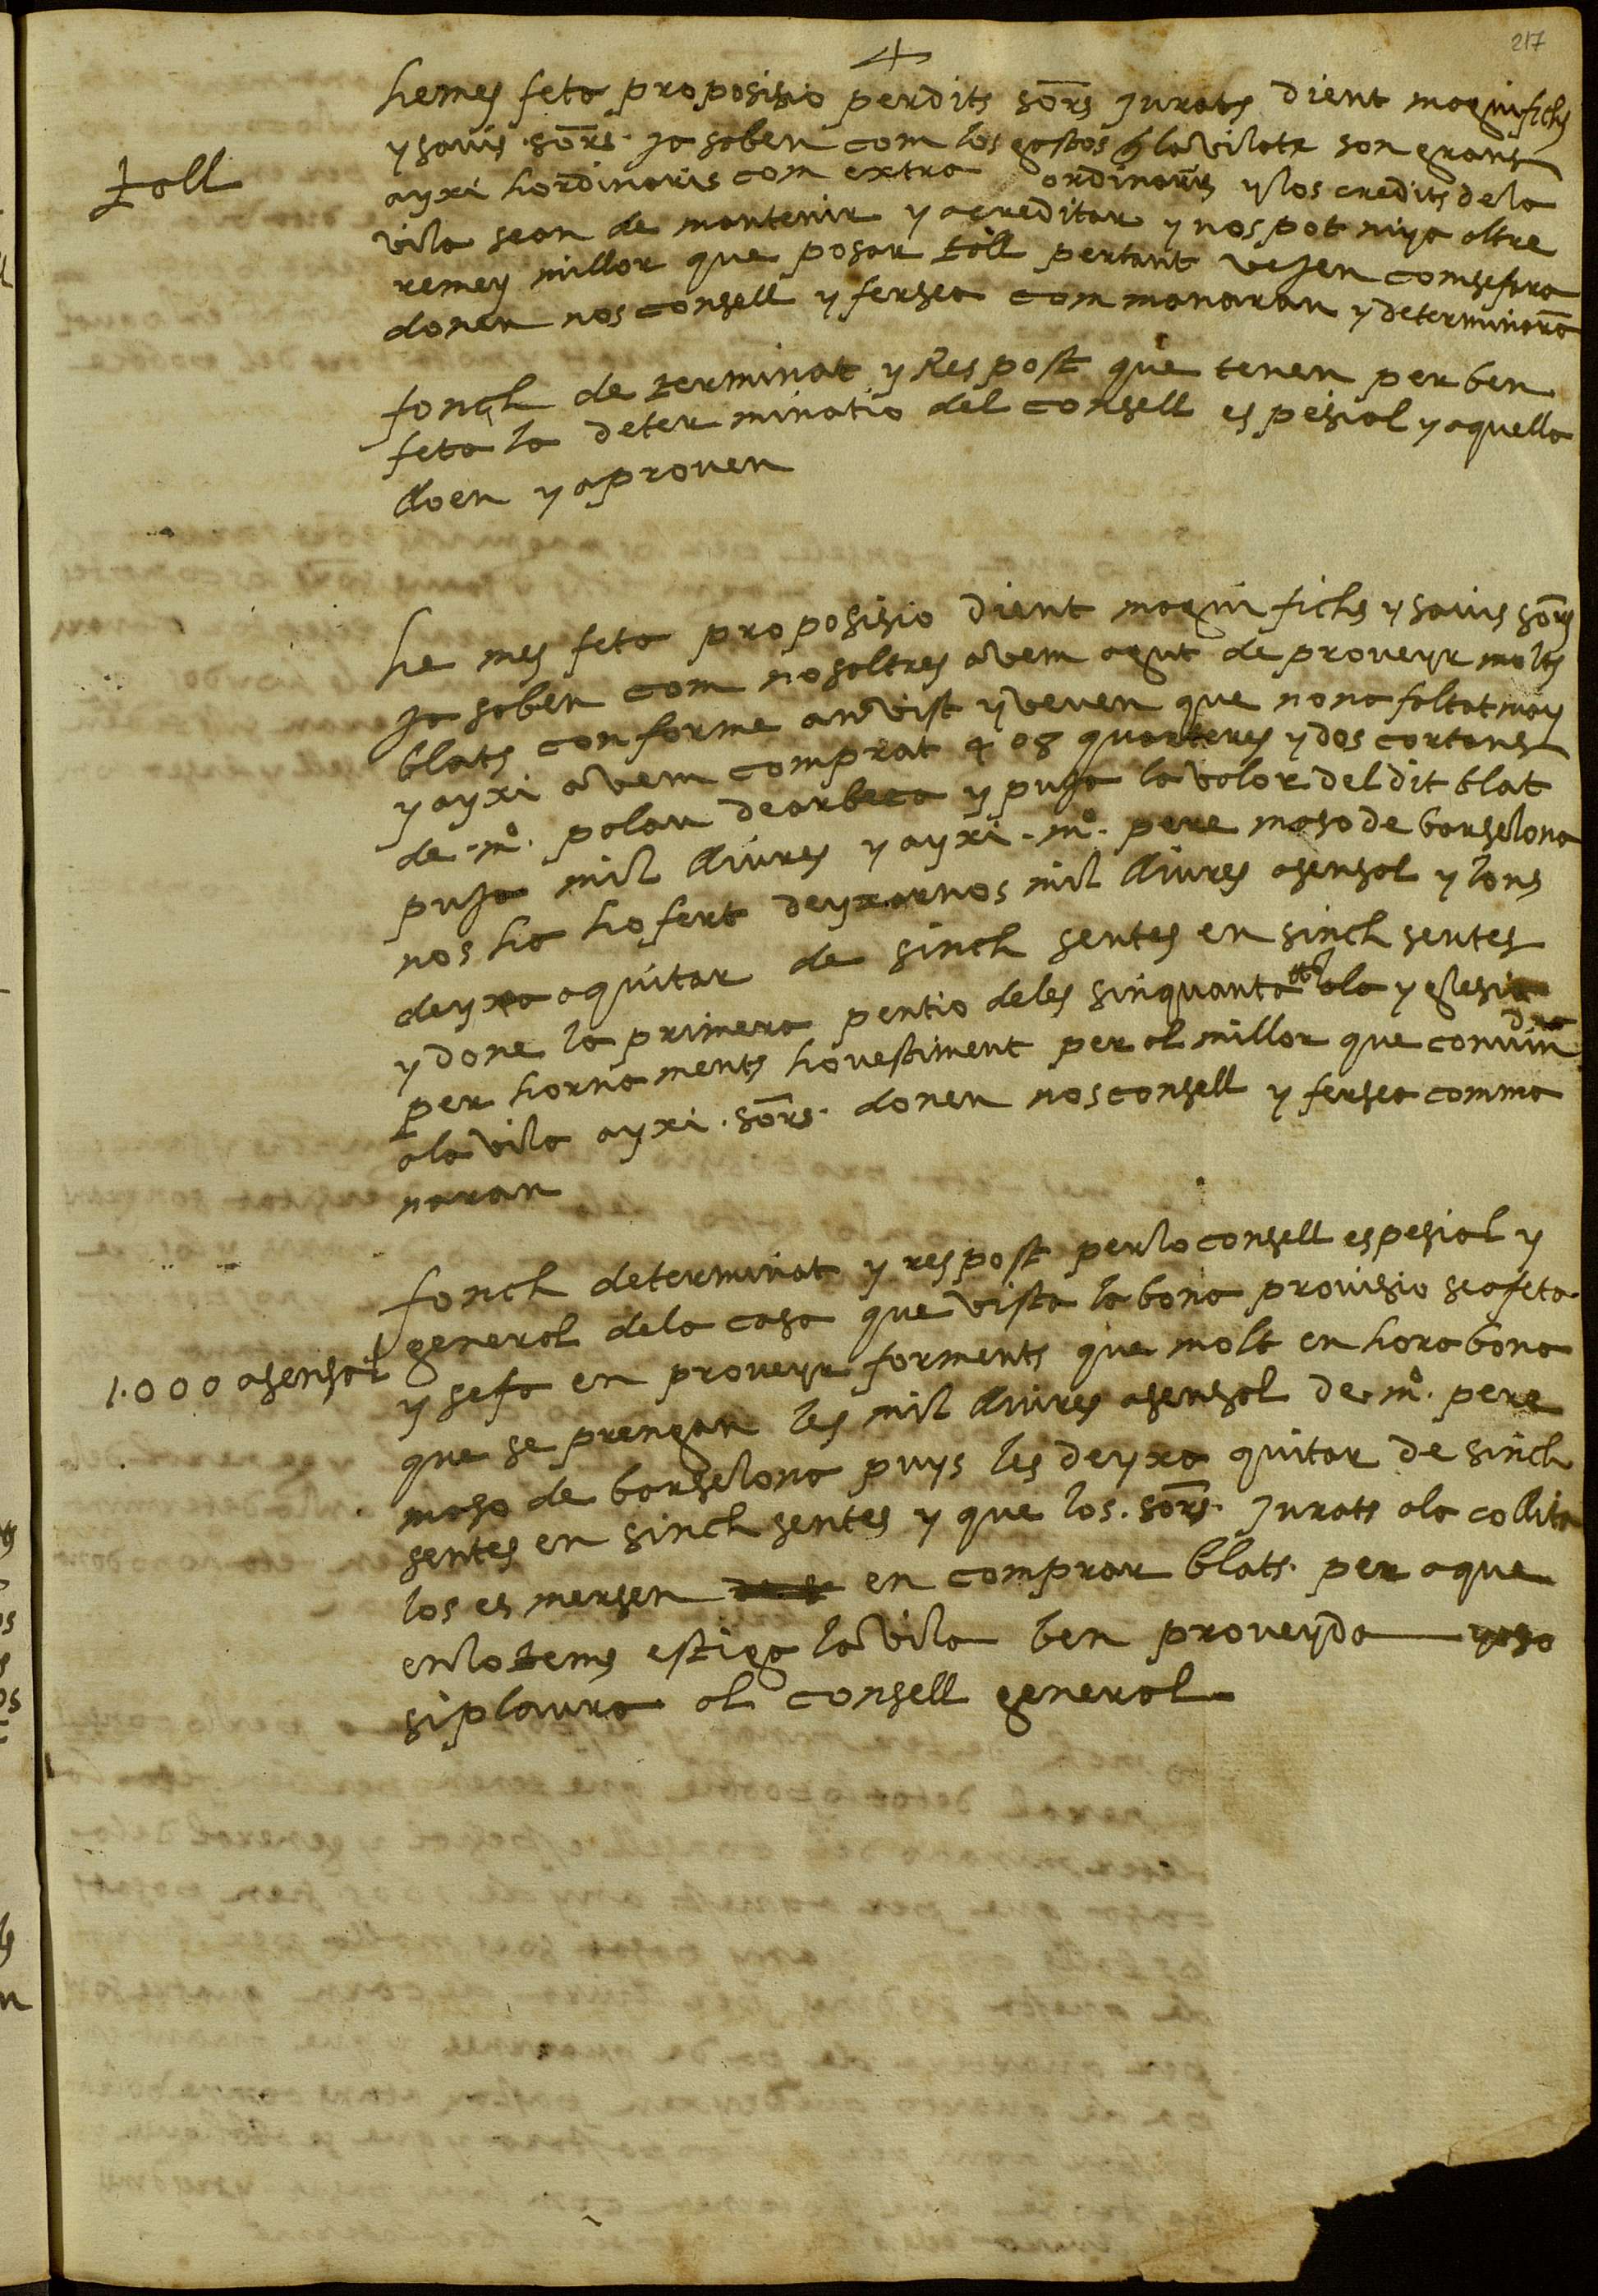 217
hemes feta proposisio perdits sors Jurats dient magnifichs
y savis sors. Ja saben com los gastos q la vila te son grans
toll
ayxi hordinaris com extra ordinaris y los credits de la
vila sean de mantenir y acreditar y nos pot niya altre
remey millor que posar toll pertant vejen comsefara
donen nos consell y fersea com manaran y determinara
fonch de terminat y Respost que tenen per ben
feta la deter minatio del consell espesial y aquella
lloen y aproven
he mes feta proposisio dient magnifichs y savis sors
Ja saben com nosaltres avem agut de proveyr molts
blats conforme an vist y veuen que nona faltat may
y ayxi avem comprat 408 quarteres y dos cortans
de .mo. palau dearbeca y puja la valor del dit blat
puja mil lliures y ayxi .mo. pere maso de barselona
nos ha hofert deyxarnos mil lliures asensal y lons
deyxa aquitar de sinch sentes en sinch sentes
y done la primera pentio deles sinquanta ala yglesia
per horna ments hovestiment per al millor que convindra
ala vila ayxi .sors. donen nos consell y fersea comma
naran
fonch determinat y respost perlo consell espesial y
general dela casa que vista la bona provisio sea feta
1.000 asensal
y sefa en proveyr forments que molt en hora bona
que se prengan les mil lliures asensal de .mo. pere
maso de barselona puys les deyxa quitar de sinch
sentes en sinch sentes y que los .sors. Jurats ala collita
los es mersen en comprar blats per aque
enlo temps estiga la vila ben proveyda yaso
siplaura al consell general